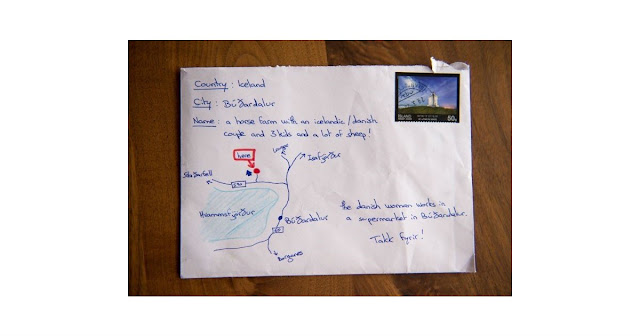 Country : Iceland
City : Búðardalur
Name : a horse farm with an icelandic/danish
couple and 3 kids and a lot of sheep!
Ísafjörður
here
590
Hvammsfjörður
Búðardalur
60
the danish woman works in
a supermarket in Búðardalur.
Takk fyrir!
ÍSLAND
50g